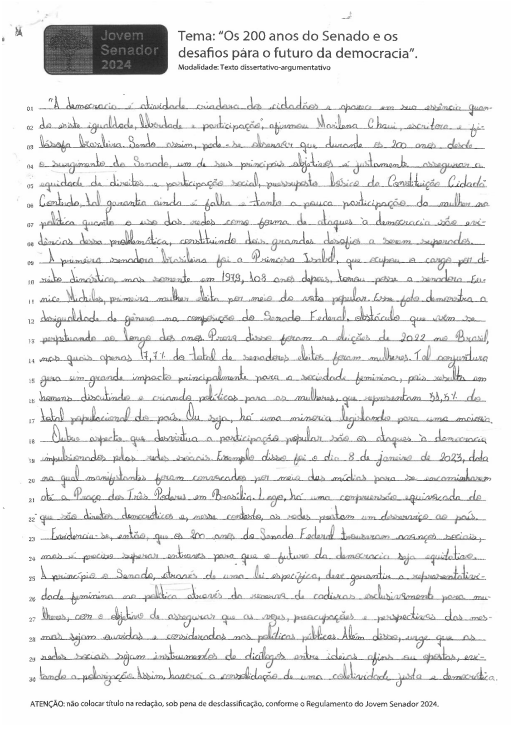 Jovem
Senador
2024
Tema: "Os 200 anos do Senado e os
desafios para o futuro da democracia".
Modalidade: Texto dissertativo-argumentativo
01 "A democracia é atividade criadora dos cidadãos e aparece em sua essência quan-
02 do existe igualdade, liberdade e participação", afirmou Marilena Chaui, escritora e fi-
03 lósofa brasileira. Sendo assim, pode-se observar que durante os 200 anos desde
04 o surgimento do Senado, um de seus principais objetivos é justamente assegurar a
05 equidade de direitos e participação social, pressuposto básico da Constituição Cidadã.
06 Contudo, tal garantia ainda é falha e tanto a pouca participação da mulher na
07 política quanto o uso das redes como forma de ataques à democracia são evi-
08 dências dessa problemática, constituindo dois grandes desafios a serem superados.
09 A primeira senadora brasileira foi a Princesa Isabel, que ocupou o cargo por di-
10 reito dinástico, mas somente em 1979, 108 anos depois, tomou posse a senadora Eu-
11 nice Michiles, primeira mulher eleita por meio do voto popular. Esse fato demonstra a
12 desigualdade de gênero na composição do Senado Federal, obstáculo que vem se
13 perpetuando ao longo dos anos. Prova disso foram as eleições de 2022 no Brasil,
14 nas quais apenas 17,7% do total de senadores eleitos foram mulheres. Tal conjuntura
15 gera um grande impacto principalmente para a sociedade feminina, pois resulta em
16 homens discutindo e criando políticas para as mulheres, que representam 51,5% do
17 total populacional do país. Ou seja, há uma minoria legislando para uma maioria.
18 Outro aspecto que desvirtua a participação popular são os ataques à democracia
19 impulsionados pelas redes sociais. Exemplo disso foi o dia 8 de janeiro de 2023, data
20 na qual manifestantes foram convocados por meio das mídias para se encaminharem
21 até a Praça dos Três Poderes em Brasília. Logo, há uma compreensão equivocada do
22 que são direitos democráticos e, nesse contexto, as redes prestam um desserviço ao país.
23 Evidencia-se, então, que os 200 anos do Senado Federal trouxeram avanços sociais,
24 mas é preciso superar entraves para que o futuro da democracia seja equitativo.
25 A princípio o Senado, através de uma lei específica, deve garantir a representativi-
26 dade feminina na política através da reserva de cadeiras exclusivamente para mu-
27 lheres, com o objetivo de assegurar que as vozes, preocupações e perspectivas das mes-
28 mas sejam ouvidas e consideradas nas políticas públicas. Além disso, urge que as
29 redes sociais sejam instrumentos de diálogos entre ideias afins ou opostas, evi-
30 tando a polarização. Assim, haverá a consolidação de uma coletividade justa e democrática.
ATENÇÃO: não colocar título na redação, sob pena de desclassificação, conforme o Regulamento do Jovem Senador 2024.